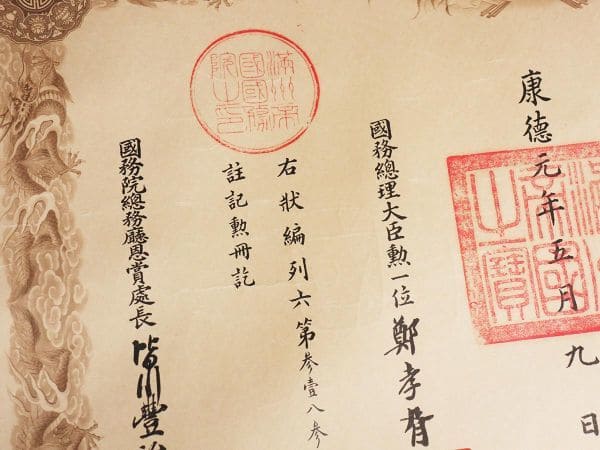 康德元年五月九日
之寶
國務總理大臣勲一位 鄭孝胥
滿洲帝國國務院之印
右狀編列六第參壹八參
註記勲冊訖
國務院總務廳恩賞處長 皆川豐